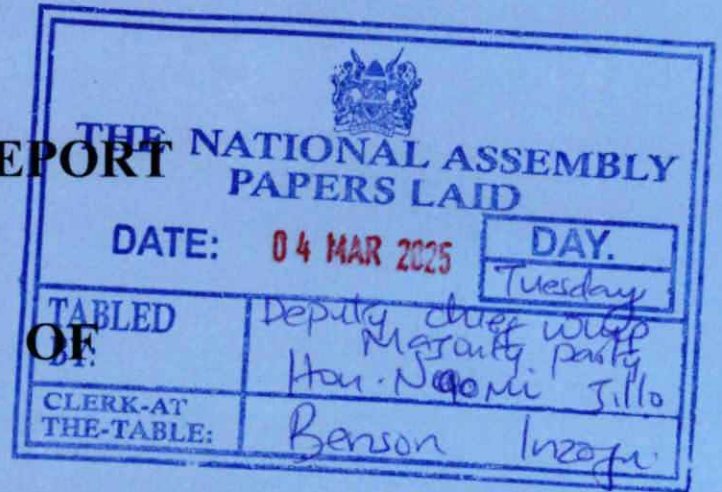 EPORT
THE NATIONAL ASSEMBLY
PAPERS LAID
DATE: 04 MAR 2025 DAY.
Tuesday
TABLED BY: Deputy chief whip
Majority party
Hon. Naomi Jillo
OF
CLERK-AT
THE-TABLE: Benson